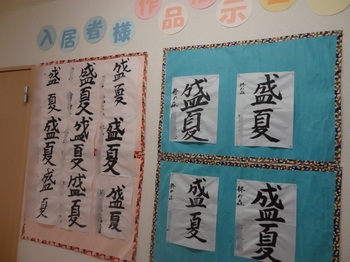 入居者様
作品展示
盛夏
盛夏
盛夏
盛夏
盛夏
盛夏
盛夏
盛夏
盛夏
盛夏
盛夏
盛夏
盛夏